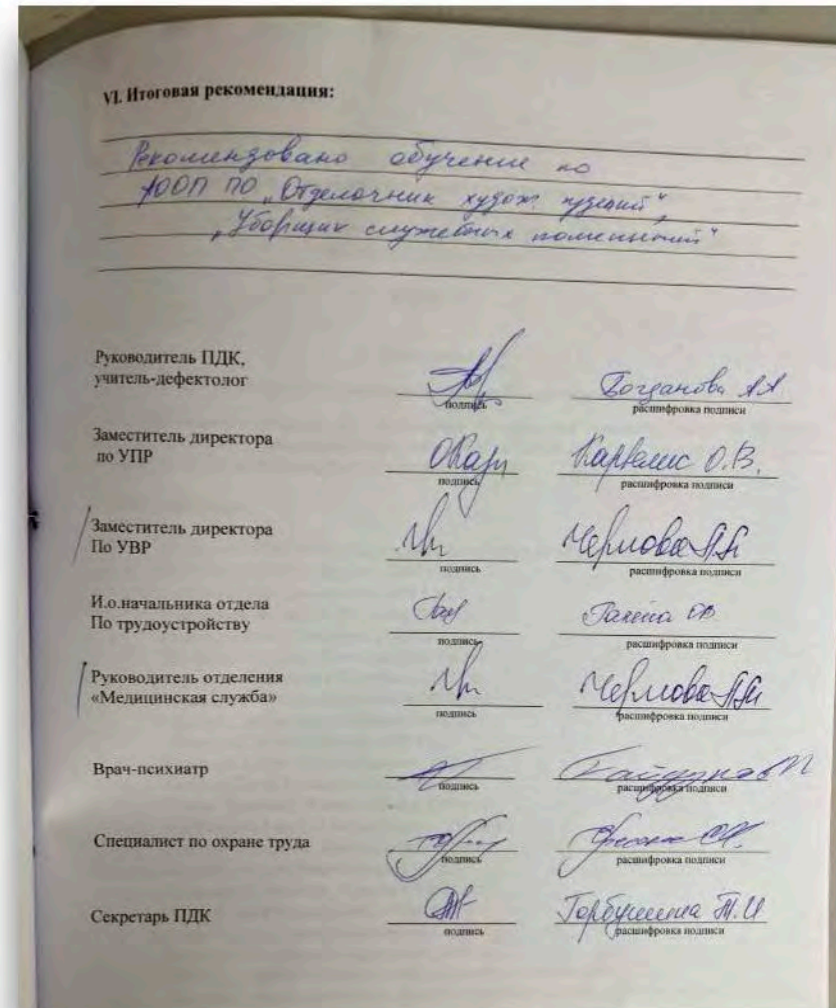 VI. Итоговая рекомендация:
Рекомендовано обучение по
АООП ПО „Отделочник худож. изделий“,
„Уборщик служебных помещений“
Руководитель ПДК,
учитель-дефектолог
Богданова А.А
подпись расшифровка подписи
Заместитель директора
по УПР
Карвелис О.В.
подпись расшифровка подписи
Заместитель директора
По УВР
подпись расшифровка подписи
И.о.начальника отдела
По трудоустройству
подпись расшифровка подписи
Руководитель отделения
«Медицинская служба»
подпись расшифровка подписи
Врач-психиатр
подпись расшифровка подписи
Специалист по охране труда
подпись расшифровка подписи
Секретарь ПДК
Горбушина Т.И
подпись расшифровка подписи